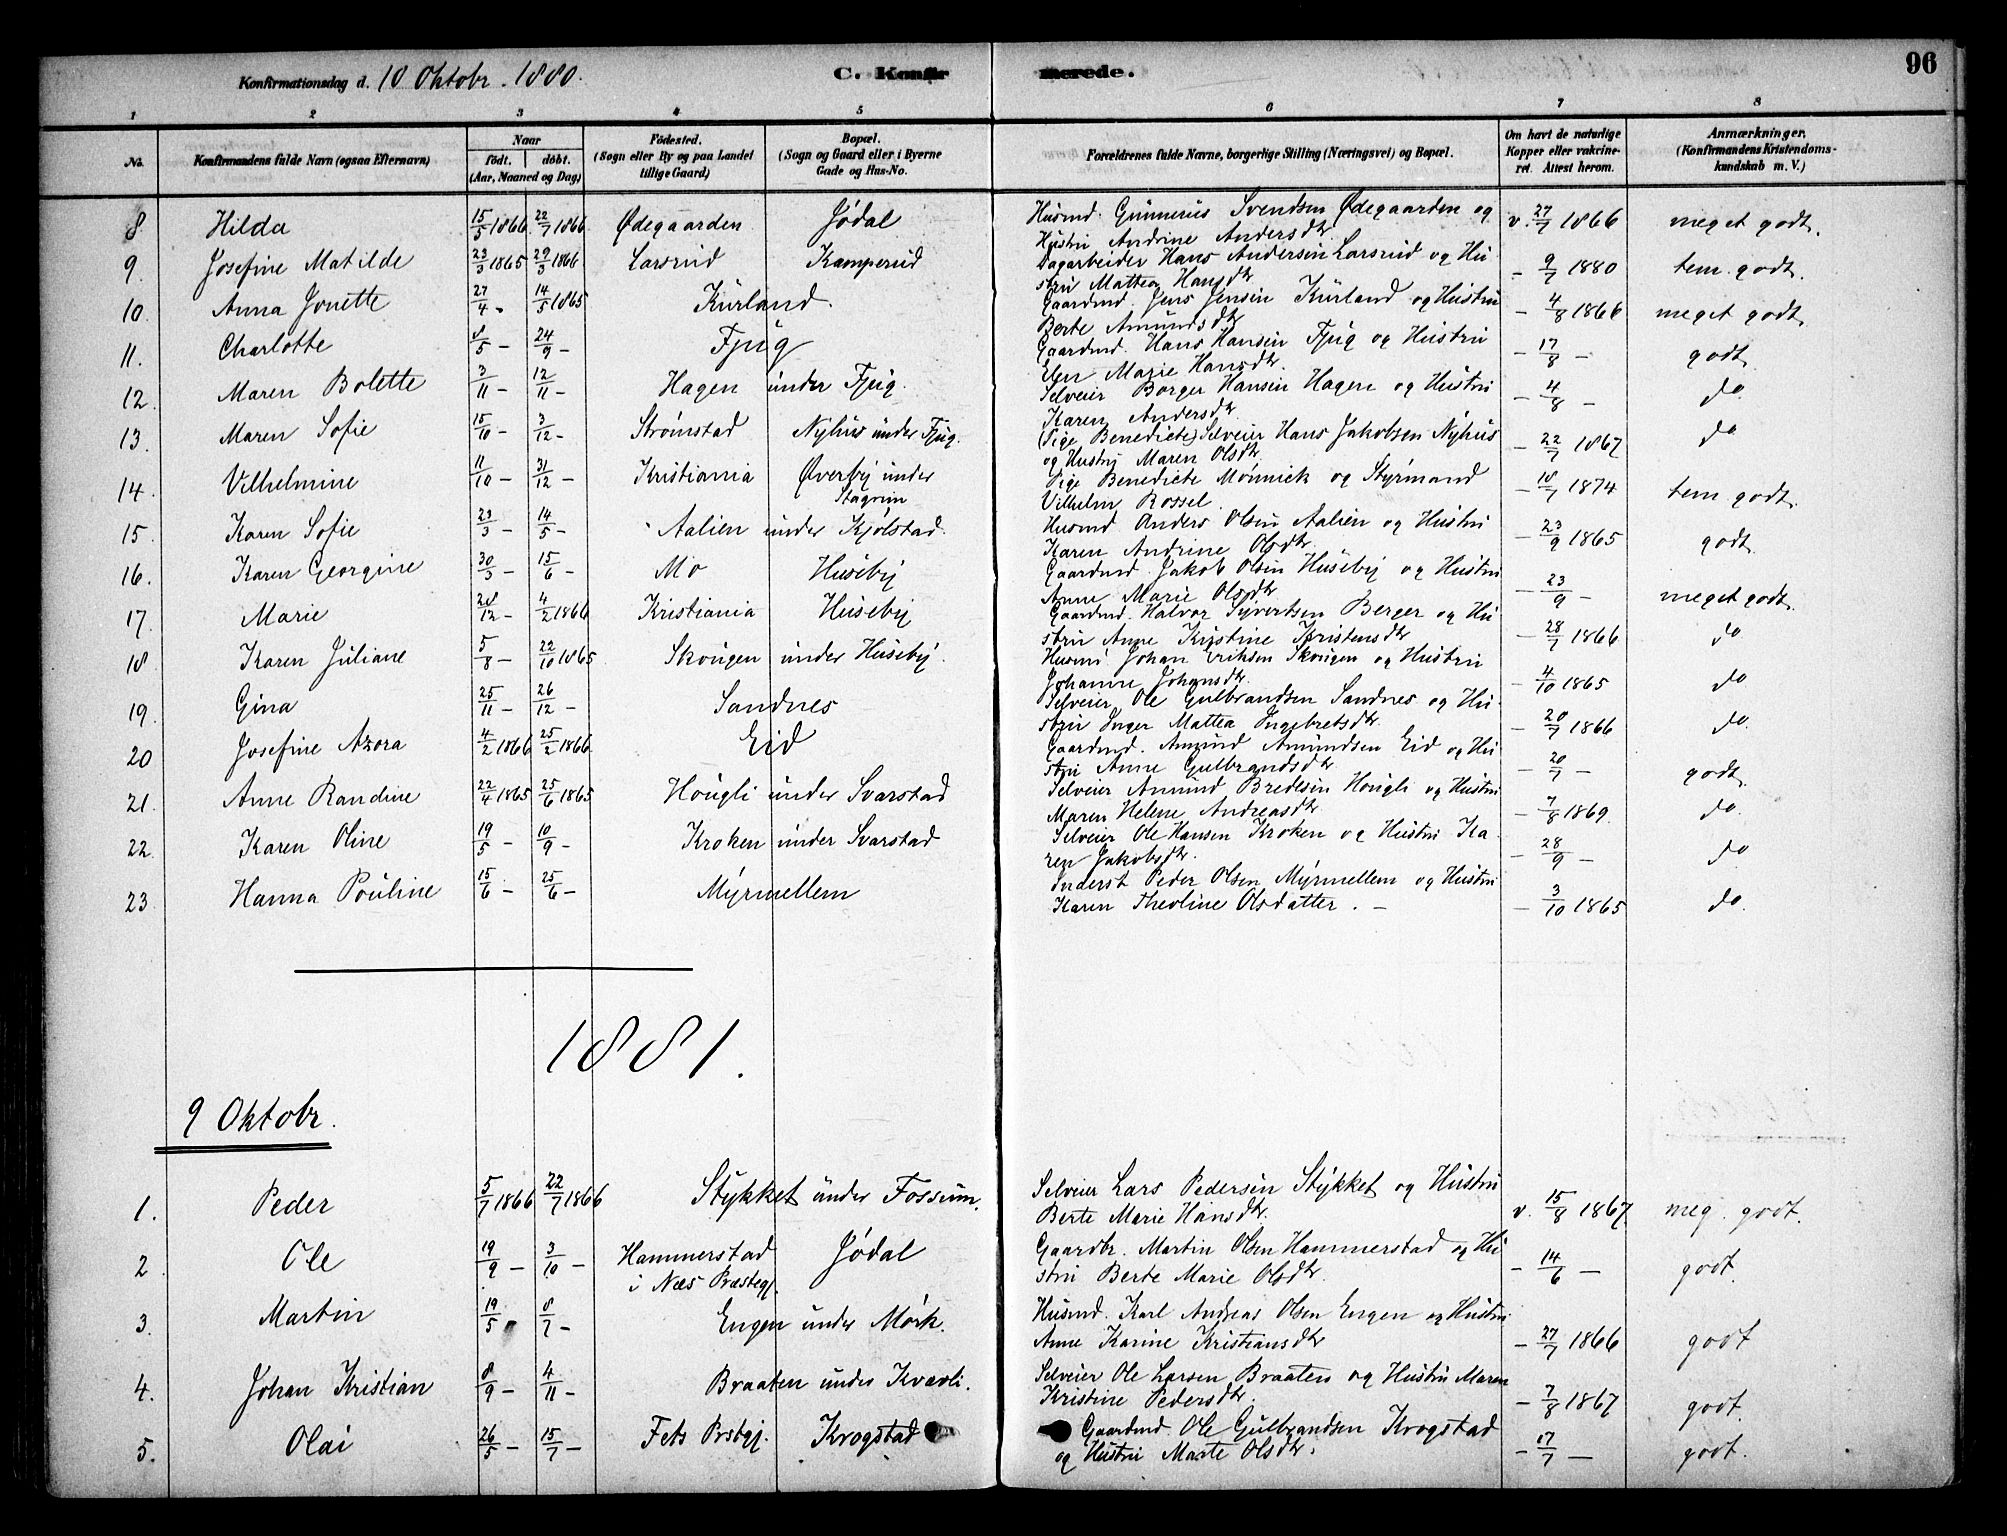 Konfirmationsdag d. 10 Oktobr. 1880. C. Konfirmerede. 96
1 2 3 4 5 6 7 8
No. Konfirmandens fulde Navn (ogsaa Efternavn) Naar født. døbt. (Aar, Maaned og Dag) Fødested. (Sogn eller By og paa Landet tillige Gaard) Bopæl. (Sogn og Gaard eller i Byerne Gade og Hus-No. Forældrenes fulde Navne, borgerlige Stilling (Næringsvei) og Bopæl. Om havt de naturlige Kopper eller vakcineret. Attest herom. Anmærkninger. (Konfirmandens Kristendomskundskab m. V.)
8 Hilda 15/5 1866 22/7 1866 Ødegaarden Jødal Husmd. Gunnerius Svendsen Ødegaarden og
Hustru Andrine Andersdtr. v. 27/7 1866 meget godt.
9. Josefine Matilde 23/3 1865 29/3 1866 Larsrud Kamperud Dagarbeider Hans Andersen Larsrud og Hu-
stru Mattea Hansdtr. - 9/7 1880 tem. godt.
10. Anna Jonette 27/4 - 14/5 1865 Kurland. Gaardmd. Jens Jensen Kurland og Hustru
Berte Amundsdtr. - 4/8 1866 meget godt.
11. Charlotte 8/5 - 24/9 - Fjug Gaardmd. Hans Hansen Fjug og Hustru
Elen Marie Hansdtr. - 17/8 - godt
12. Maren Bolette 3/11 - 12/11 - Hagen under Fjug. Selveier Borger Hansen Hagen og Hustru
Karen Andersdtr. - 4/8 - do.
13. Maren Sofie 15/10 - 3/12 - Strømstad Nyhus under Fjug. (Pige Benedicte) Selveier Hans Jakobsen Nyhus
og Hustru Maren Olsdtr. - 22/7 1867 do
14. Vilhelmine 11/10 - 31/12 - Kristiania Øverby under
Stagrim Pige Benedicte Mønnick og Styrmand
Vilhelm Rossel. - 18/7 1874 tem godt.
15. Karen Sofie 23/3 - 14/5 - Aalien under Kjølstad. Husmd. Anders Olsen Aalien og Hustru
Karen Andrine Olsdtr. - 23/9 1865 godt.
16. Karen Georgine 30/3 - 15/6 - Mo Huseby Gaardmd. Jakob Olsen Huseby og Hustru
Anne Marie Olsdtr. - 23/9 - meget godt.
17. Marie 28/12 - 4/2 1866 Kristiania Huseby Gaardmd. Halvor Syvertsen Berger og Hu-
stru Anne Kristine Kristensdtr - 28/7 1866 do
18 Karen Juliane 5/8 - 22/10 1865 Skougen under Huseby. Husmd. Johan Eriksen Skougen og Hustru
Johanne Johansdtr. - 4/10 1865 do
19. Gina 25/11 - 26/12 - Sandnes Selveier Ole Gulbrandsen Sandnes og Hu-
stru Inger Mattea Ingebretsdtr. - 20/7 1866 do.
20 Josefine Azora 4/2 1866 25/2 1866 Eid Gaardmd. Amund Amundsen Eid og Hu-
stru Anne Gulbrandsdtr - 20/7 - godt
21. Anne Randine 22/4 1865 25/6 1865 Hougli under Svarstad Selveier Amund Bredesen Hougli og Hustru
Maren Helene Andreasdtr. - 7/8 1869 do.
22. Karen Oline 19/5 - 10/9 - Kroken under Svarstad Selveier Ole Hansen Kroken og Hustru Ka-
ren Jakobsdtr. - 28/9 - do
23. Hanna Pouline 15/6 - 25/6 - Myrmellem Inderst Peder Olsen Myrmellem og Hustru
Karen Theoline Olsdatter. - - 3/10 1865 do.
1881.
9 Oktobr.
1. Peder 5/7 1866 22/7 1866 Stykket under Fossum. Selveier Lars Pedersen Stykket og Hustru
Berte Marie Hansdtr. v. 15/8 1867 meg. godt.
2. Ole 19/9 - 3/10 - Hammerstad
i Næs Præstegj. Jødal Gaardbr. Martin Olsen Hammerstad og Hu-
stru Berte Marie Olsdtr. - 14/6 - godt.
3. Martin 19/5 8/7 - Engen under Mørk. Husmd. Karl Andreas Olsen Engen og Hustru
Anne Karine Kristiansdtr - 27/7 1866 godt
4. Johan Kristian 8/9 - 4/11 - Braaten under Kvavli. Selveier Ole Larsen Braaten og Hustru Maren
Kristine Pedersdtr. - 7/8 1867 godt.
5. Olai 26/5 - 15/7 - Fets Prstgj. Krogstad Gaardmd. Ole Gulbrandsen Krogstad
og Hustru Marte Olsdtr. - 17/7 - godt.